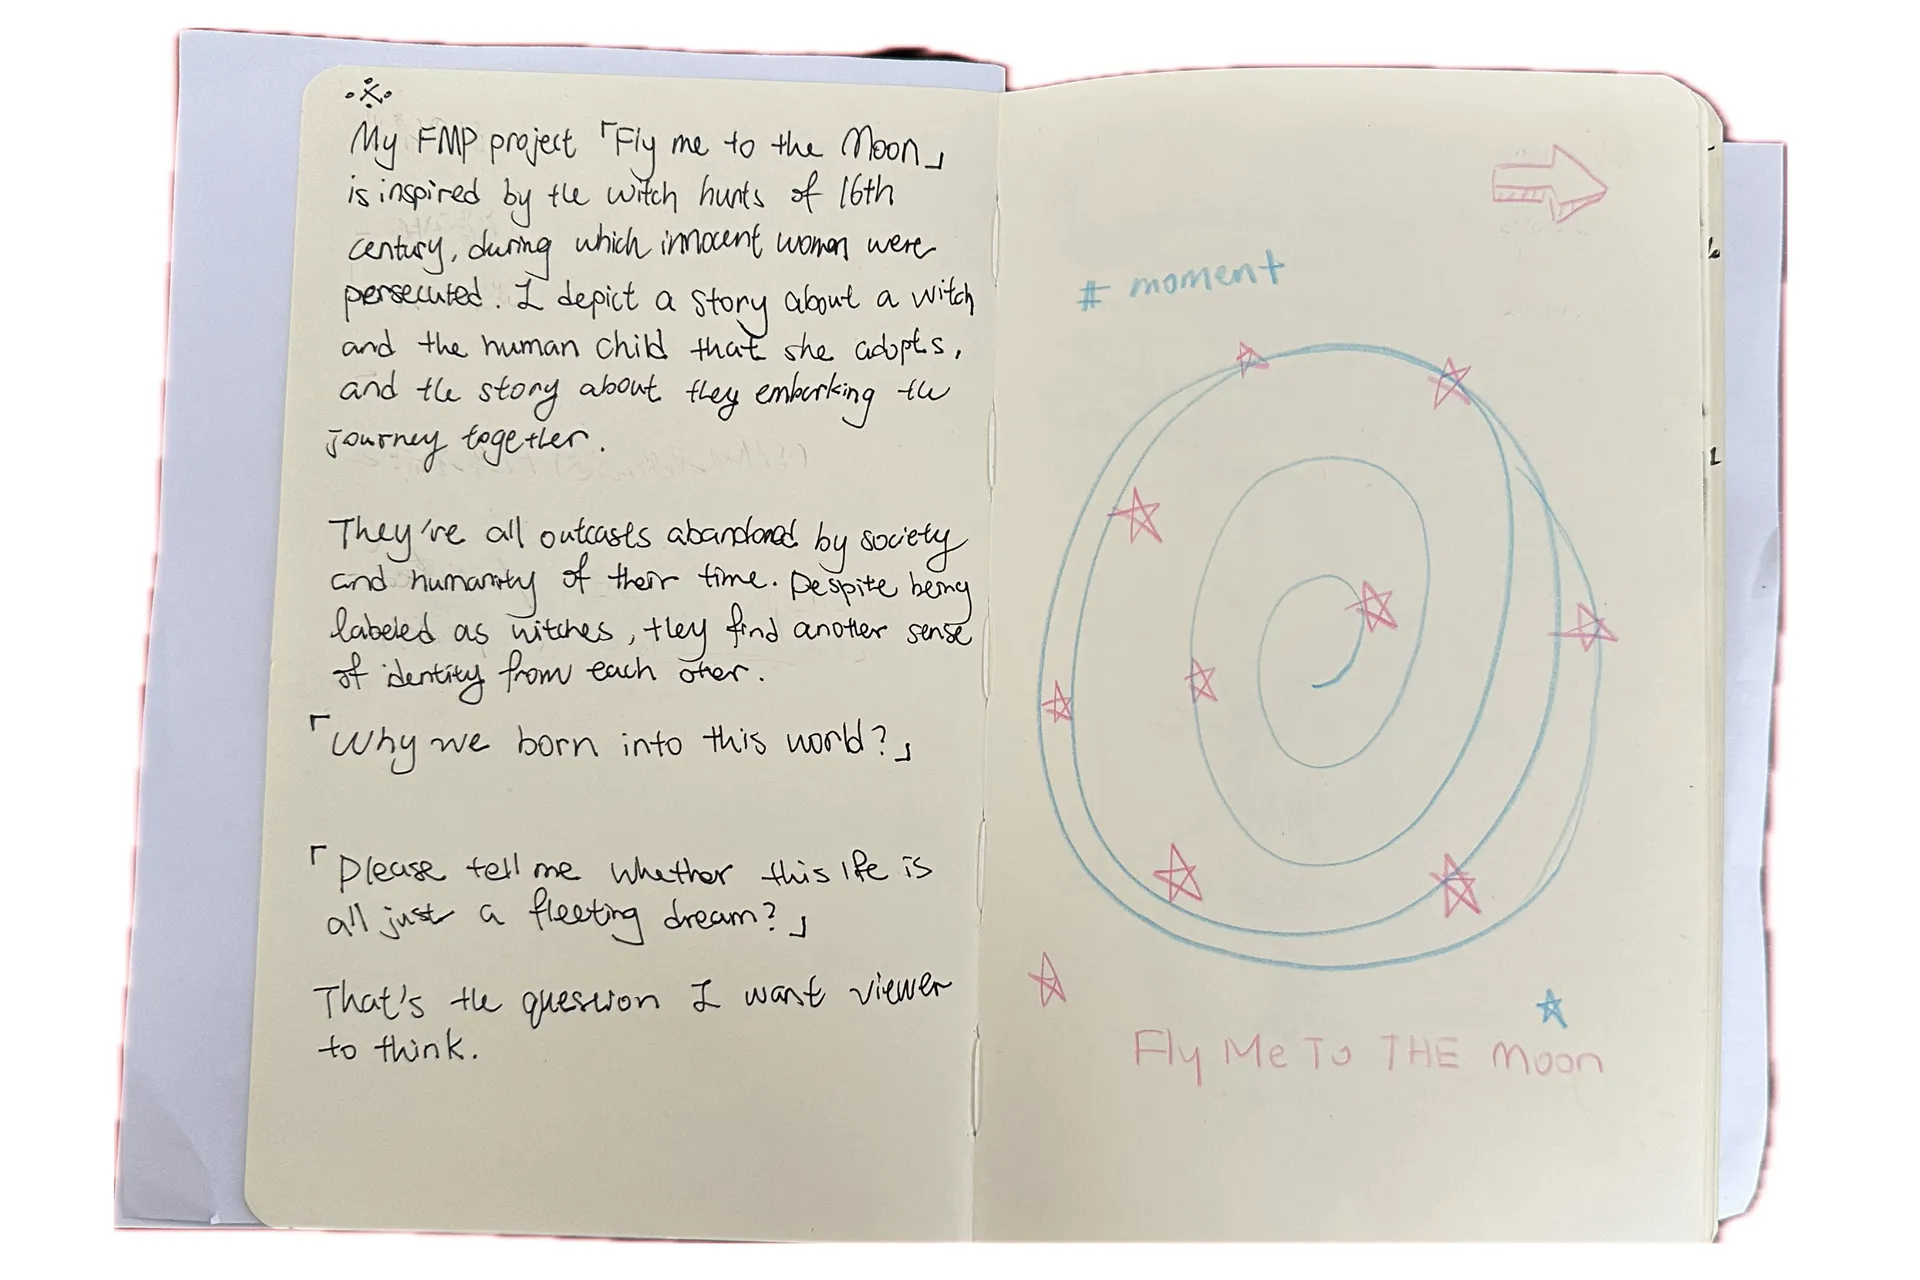 My FMP project「Fly me to the Moon」
is inspired by the witch hunts of 16th
century, during which innocent women were
persecuted. I depict a story about a witch
and the human child that she adopts,
and the story about they embarking the
journey together.
They're all outcasts abandoned by society
and humanity of their time. Despite being
labeled as witches, they find another sense
of identity from each other.
「Why we born into this world?」
「Please tell me whether this life is
all just a fleeting dream?」
That's the question I want viewer
to think.
# moment
Fly Me To THE Moon